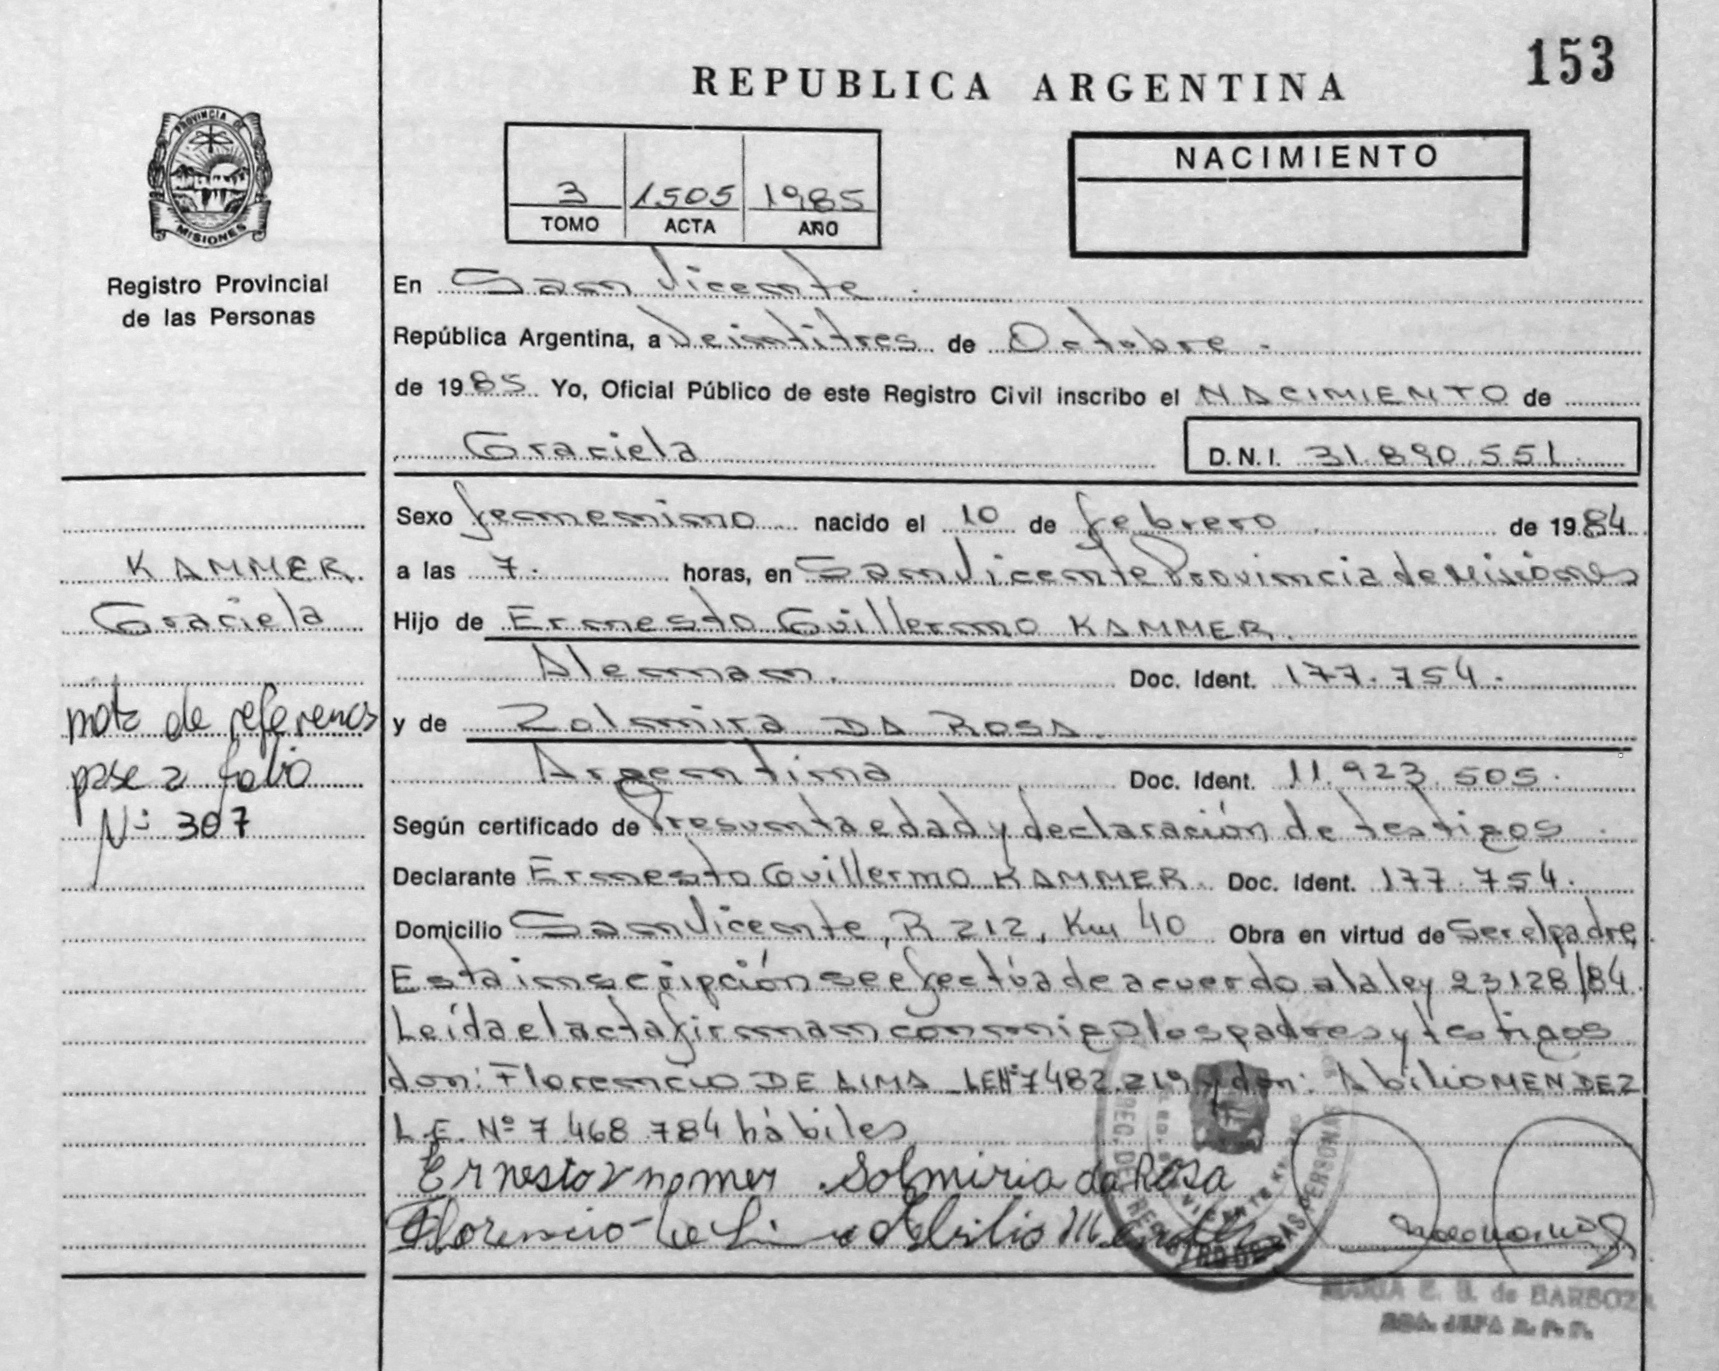 153
REPUBLICA ARGENTINA
PROVINCIA DE
MISIONES
Registro Provincial
de las Personas
3 1505 1985
TOMO ACTA AÑO
NACIMIENTO
En San Vicente
República Argentina, a Veintitres de Octubre.
de 1985 Yo, Oficial Público de este Registro Civil inscribo el NACIMIENTO de
Graciela D.N.I. 31.890.551.
KAMMER.
Graciela
nota de referencia
pase a folio
Nº 307
Sexo femenino nacido el 10 de febrero de 1984
a las 7. horas, en San Vicente Provincia de Misiones
Hijo de Ernesto Guillermo KAMMER.
Aleman. Doc. Ident. 177.754.
y de Zolmira DA ROSA.
Argentina Doc. Ident. 11.923.505.
Según certificado de Presunta edad y declaración de testigos.
Declarante Ernesto Guillermo KAMMER. Doc. Ident. 177.754.
Domicilio San Vicente, R 212, Km 40 Obra en virtud de Ser el padre,
Esta inscripción se efectúa de acuerdo a la ley 23128/84.
Leída el acta firman conmigo los padres y testigos
don: Florencio DE LIMA LE Nº 7482.219 y don: Abilio MENDEZ
L.E. Nº 7 468 784 hábiles
Ernesto Solmiria da Rosa
Florencio de Lima Abilio
REGISTRO DE LAS PERSONAS
MARIA E. B. de BARBOZA